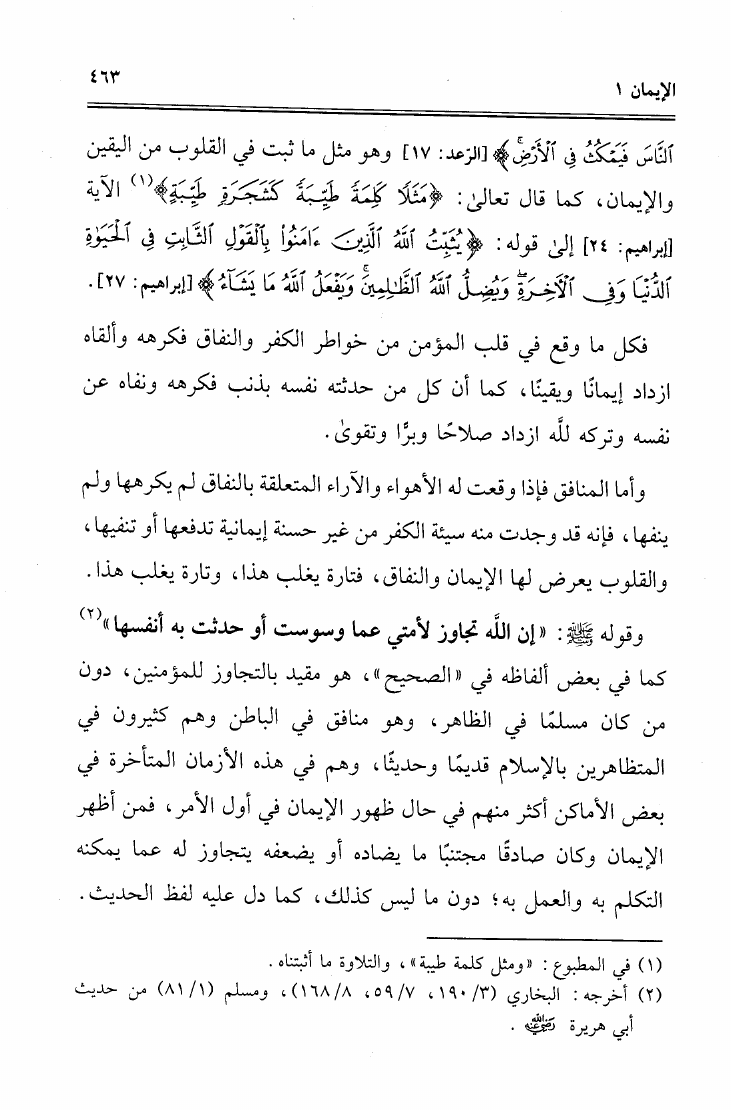 الإيمان ١
٤٦٣
ٱلنَّاسَ فَيَمْكُثُ فِى ٱلْأَرْضِۚ﴾ [الرّعد: ١٧] وهو مثل ما ثبت في القلوب من اليقين
والإيمان، كما قال تعالىٰ: ﴿مَثَلًا كَلِمَةً طَيِّبَةً كَشَجَرَةٍ طَيِّبَةٍ﴾(١) الآية
[إبراهيم: ٢٤] إلىٰ قوله: ﴿يُثَبِّتُ ٱللَّهُ ٱلَّذِينَ ءَامَنُوا۟ بِٱلْقَوْلِ ٱلثَّابِتِ فِى ٱلْحَيَوٰةِ
ٱلدُّنْيَا وَفِى ٱلْأَخِرَةِۖ وَيُضِلُّ ٱللَّهُ ٱلظَّٰلِمِينَۚ وَيَفْعَلُ ٱللَّهُ مَا يَشَآءُ﴾ [إبراهيم: ٢٧].
فكل ما وقع في قلب المؤمن من خواطر الكفر والنفاق فكرهه وألقاه
ازداد إيمانًا ويقينًا، كما أن كل من حدثته نفسه بذنب فكرهه ونفاه عن
نفسه وتركه للَّه ازداد صلاحًا وبرًّا وتقوىٰ.
وأما المنافق فإذا وقعت له الأهواء والآراء المتعلقة بالنفاق لم يكرهها ولم
ينفها، فإنه قد وجدت منه سيئة الكفر من غير حسنة إيمانية تدفعها أو تنفيها،
والقلوب يعرض لها الإيمان والنفاق، فتارة يغلب هذا، وتارة يغلب هذا.
وقوله ﷺ: «إن اللَّه تجاوز لأمتي عما وسوست أو حدثت به أنفسها»(٢)
كما في بعض ألفاظه في «الصحيح»، هو مقيد بالتجاوز للمؤمنين، دون
من كان مسلمًا في الظاهر، وهو منافق في الباطن وهم كثيرون في
المتظاهرين بالإسلام قديمًا وحديثًا، وهم في هذه الأزمان المتأخرة في
بعض الأماكن أكثر منهم في حال ظهور الإيمان في أول الأمر، فمن أظهر
الإيمان وكان صادقًا مجتنبًا ما يضاده أو يضعفه يتجاوز له عما يمكنه
التكلم به والعمل به؛ دون ما ليس كذلك، كما دل عليه لفظ الحديث.
(١) في المطبوع: «ومثل كلمة طيبة»، والتلاوة ما أثبتناه.
(٢) أخرجه: البخاري (٣/ ١٩٠، ٧/ ٥٩، ٨/ ١٦٨)، ومسلم (١/ ٨١) من حديث
أبي هريرة رضي الله عنه.